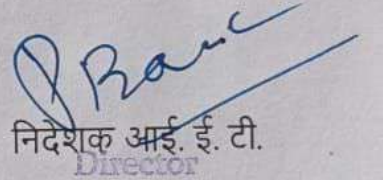 निदेशक आई. ई. टी.
Director